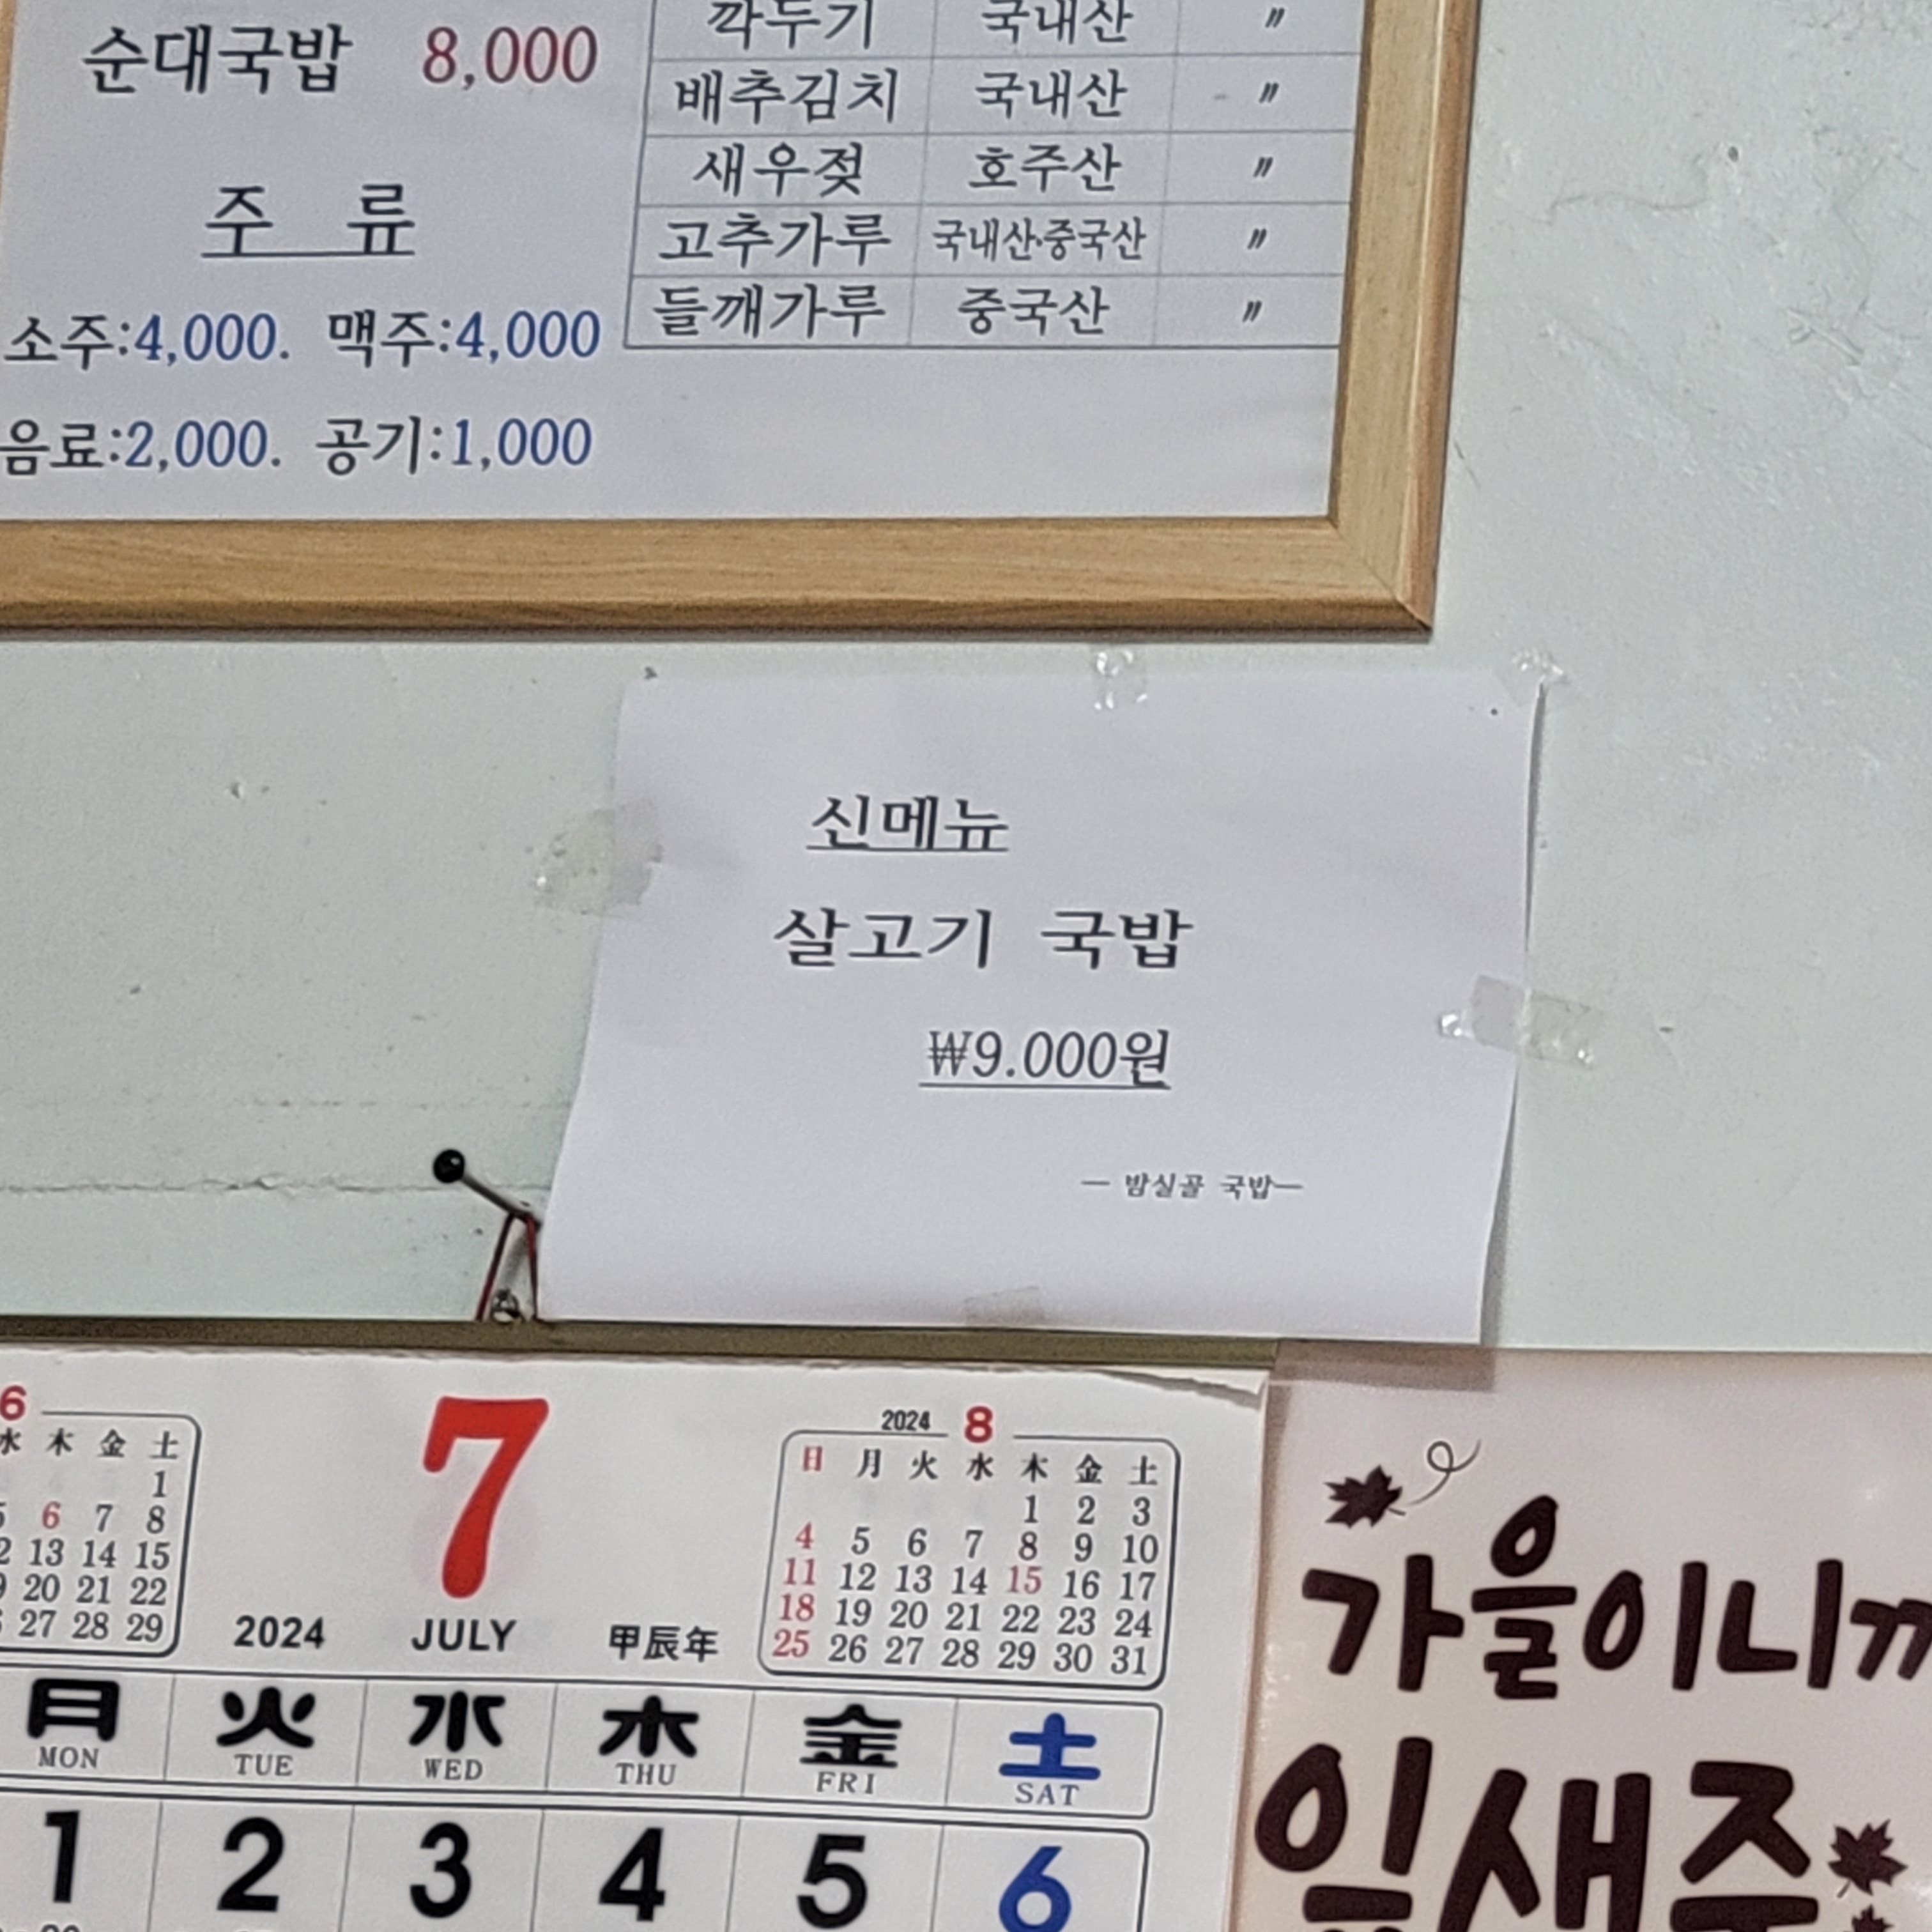 순대국밥 8,000
주 류
소주:4,000. 맥주:4,000
음료:2,000. 공기:1,000
깍두기 국내산 〃
배추김치 국내산 〃
새우젖 호주산 〃
고추가루 국내산·중국산 〃
들깨가루 중국산 〃
신메뉴
살고기 국밥
₩9.000원
― 밤실골 국밥―
6
水 木 金 土
1
5 6 7 8
12 13 14 15
19 20 21 22
26 27 28 29
7
2024 JULY 甲辰年
2024 8
日 月 火 水 木 金 土
1 2 3
4 5 6 7 8 9 10
11 12 13 14 15 16 17
18 19 20 21 22 23 24
25 26 27 28 29 30 31
月 火 水 木 金 土
MON TUE WED THU FRI SAT
1 2 3 4 5 6
가을이니까
잎새주